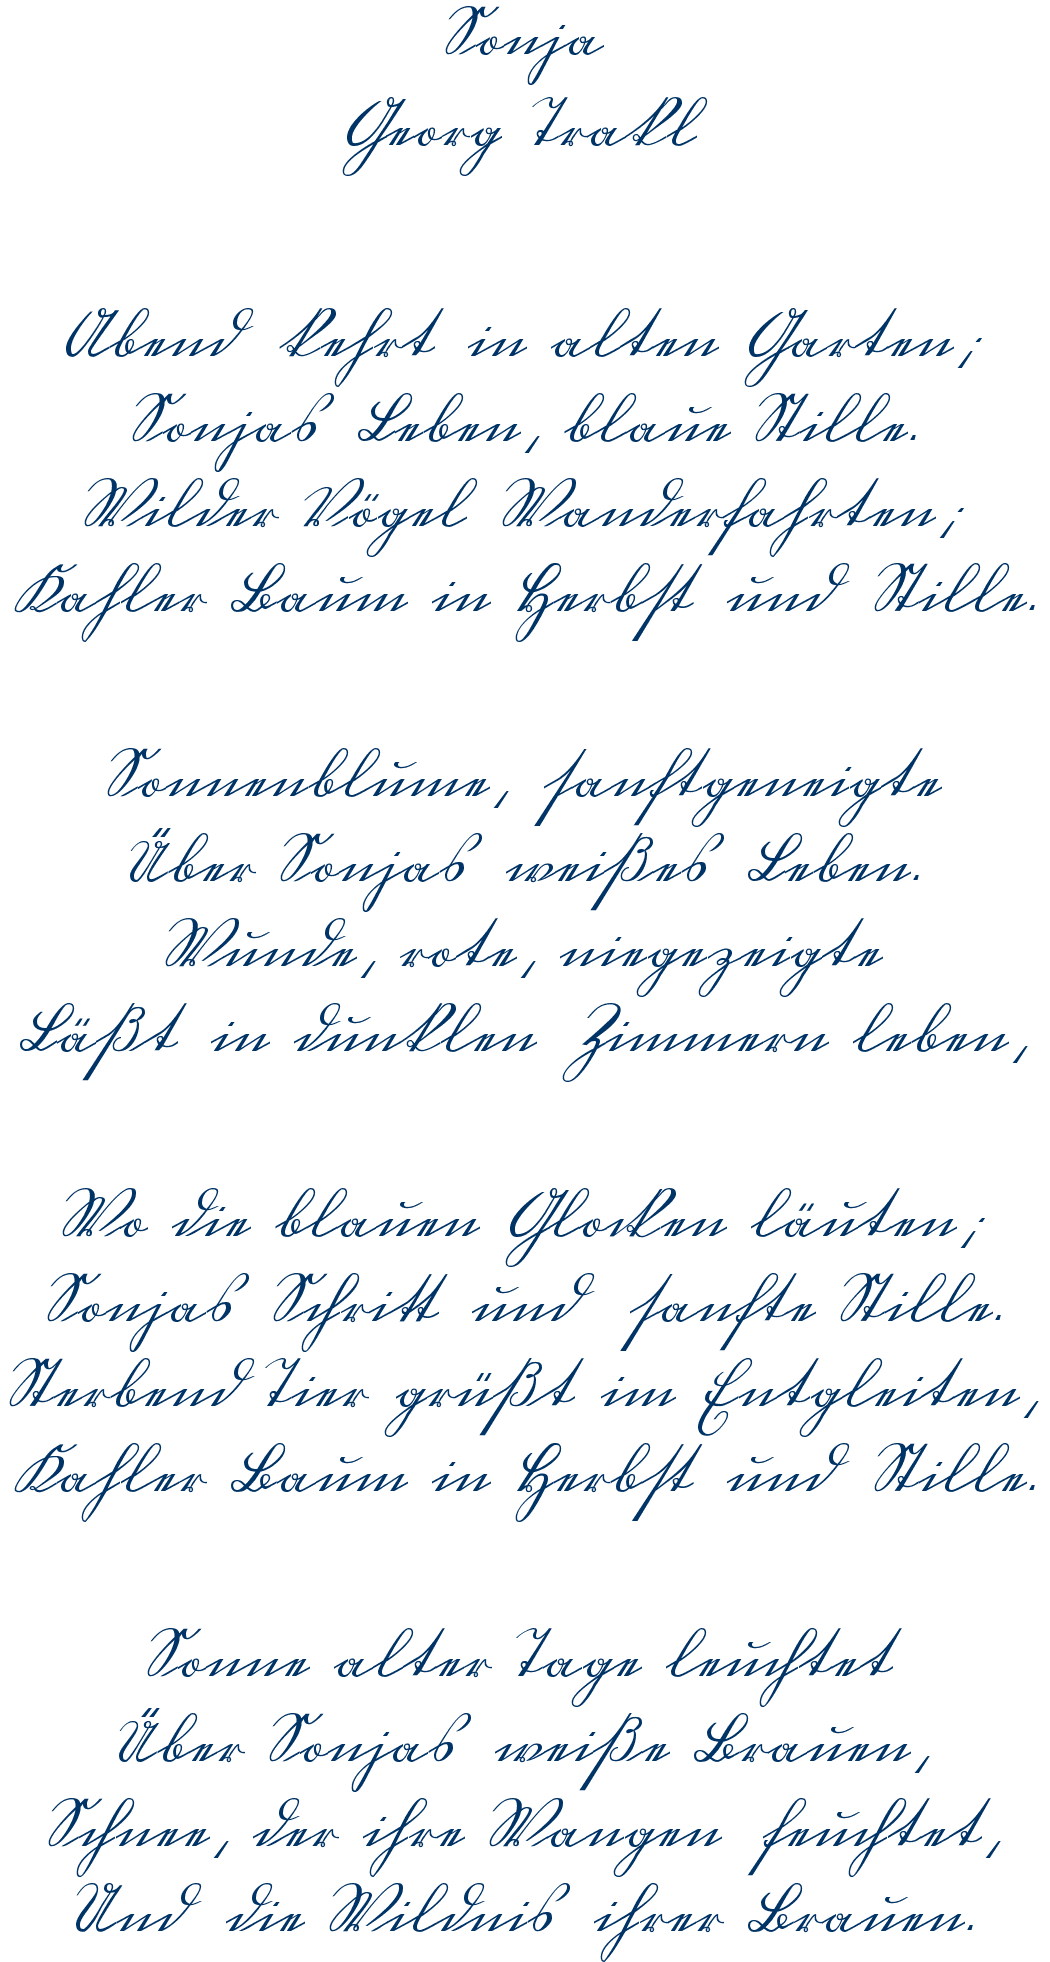 Sonja
Georg Trakl
Abend kehrt in alten Garten;
Sonjas Leben, blaue Stille.
Wilder Vögel Wanderfahrten;
Kahler Baum in Herbst und Stille.
Sonnenblume, sanftgeneigte
Über Sonjas weißes Leben.
Wunde, rote, niegezeigte
Läßt in dunklen Zimmern leben,
Wo die blauen Glocken läuten;
Sonjas Schritt und sanfte Stille.
Sterbend Tier grüßt im Entgleiten,
Kahler Baum in Herbst und Stille.
Sonne alter Tage leuchtet
Über Sonjas weiße Brauen,
Schnee, der ihre Wangen feuchtet,
Und die Wildnis ihrer Brauen.